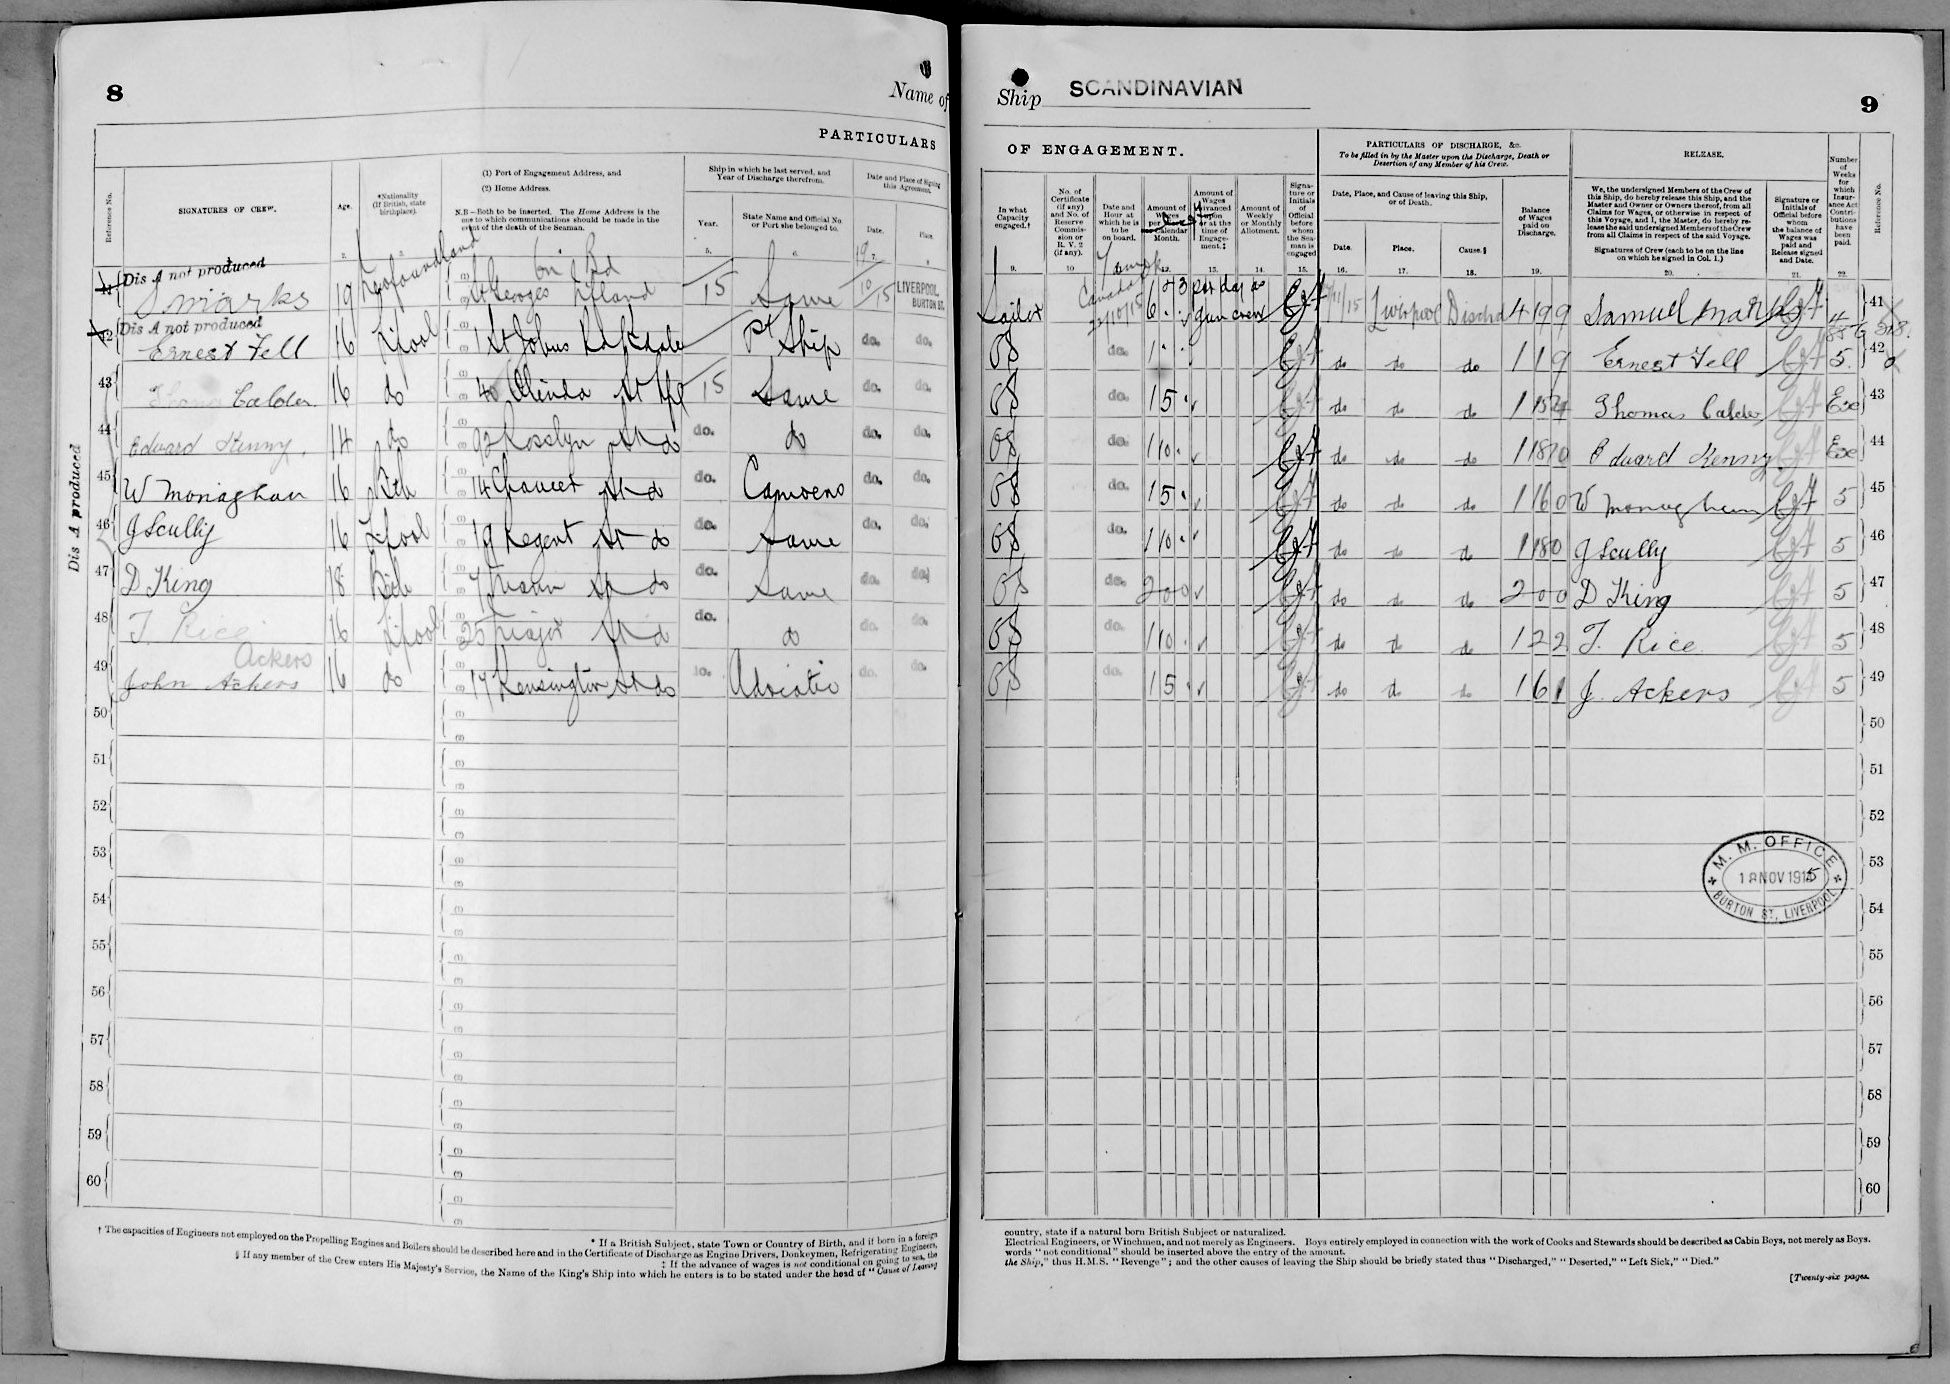 8
Name of
PARTICULARS
Reference No.
SIGNATURES OF CREW.
Age.
*Nationality
(If British, state
birthplace).
(1) Port of Engagement Address, and
(2) Home Address.
N.B.—Both to be inserted. The Home Address is the
one to which communications should be made in the
event of the death of the Seaman.
Ship in which he last served, and
Year of Discharge therefrom.
Year.
State Name and Official No.
or Port she belonged to.
Date and Place of Signing
this Agreement.
Date.
Place.
2.
5.
6.
7.
Dis A produced
41 Dis A not produced
S Marks 19 Newfoundland St Georges Island 15 Same 19/10/15 LIVERPOOL, BURTON ST.
42 Dis A not produced
Ernest Fell 16 L'pool 1 St Johns 1st Ship do. do.
43 Thomas Calder 16 do 40 St 15 Same do. do.
44 Edward Kenny. 14 do 92 Rosslyn St do do. do do. do.
45 W Monaghan 16 14 Chaucer St do do. Camoens do. do.
46 J Scully 16 L'pool 19 Regent St do do. Same do. do.
47 D King 18 St do do. Same do. do.
48 T. Rice 16 L'pool 25 St do do. do do. do.
49 Ackers
John Ackers 16 do 17 Kensington St do do. Adriatic do. do.
50
51
52
53
54
55
56
57
58
59
60
* If a British Subject, state Town or Country of Birth, and if born in a foreign
† The capacities of Engineers not employed on the Propelling Engines and Boilers should be described here and in the Certificate of Discharge as Engine Drivers, Donkeymen, Refrigerating Engineers,
‡ If the advance of wages is not conditional on going to sea, the
§ If any member of the Crew enters His Majesty's Service, the Name of the King's Ship into which he enters is to be stated under the head of "Cause of Leaving
Ship SCANDINAVIAN
9
OF ENGAGEMENT.
PARTICULARS OF DISCHARGE, &c.
To be filled in by the Master upon the Discharge, Death or
Desertion of any Member of his Crew.
RELEASE.
In what
Capacity
engaged.†
No. of
Certificate
(if any)
and No. of
Reserve
Commis-
sion or
R. V. 2
(if any).
Date and
Hour at
which he is
to be
on board.
Amount of
Wages
per Calendar
Month.
Amount of
Wages
Advanced
upon
or at the
time of
Engage-
ment.‡
Amount of
Weekly
or Monthly
Allotment.
Signa-
ture or
Initials
of
Official
before
whom
the Sea-
man is
engaged
Date, Place, and Cause of leaving this Ship,
or of Death.
Date.
Place.
Cause.§
Balance
of Wages
paid on
Discharge.
We, the undersigned Members of the Crew of
this Ship, do hereby release this Ship, and the
Master and Owner or Owners thereof, from all
Claims for Wages, or otherwise in respect of
this Voyage, and I, the Master, do hereby re-
lease the said undersigned Members of the Crew
from all Claims in respect of the said Voyage.
Signatures of Crew (each to be on the line
on which he signed in Col. 1.)
Signature or
Initials of
Official before
whom
the balance of
Wages was
paid and
Release signed
and Date.
Number
of
Weeks
for
which
Insur-
ance Act
Contri-
butions
have
been
paid.
Reference No.
9.
10
12.
13.
14.
15.
16.
17.
18.
19.
20.
21.
22.
Sailor Canada 22/10/15 6 per day as gun crew Liverpool Dischd 4 19 9 Samuel Marks 41
OS do. 1 do do do 1 1 9 Ernest Fell 5. 42
OS do. 15 do do do Thomas Calder Exe 43
OS do. 1 10 do do do Edward Kenny Exe 44
OS do. 15 do do do 1 16 0 W Monaghan 5 45
OS do. 1 10 do do do 1 18 0 J Scully 5 46
OS do. 2 0 0 do do do 2 0 0 D King 5 47
OS do. 1 10 do do do 1 2 2 T. Rice 5 48
OS do. 15 do do do 1 6 1 J. Ackers 5 49
50
51
52
53
54
55
56
57
58
59
60
M. M. OFFICE
18 NOV 1915
BURTON ST, LIVERPOOL
country, state if a natural born British Subject or naturalized.
Electrical Engineers, or Winchmen, and not merely as Engineers. Boys entirely employed in connection with the work of Cooks and Stewards should be described as Cabin Boys, not merely as Boys.
words "not conditional" should be inserted above the entry of the amount.
the Ship," thus H.M.S. "Revenge"; and the other causes of leaving the Ship should be briefly stated thus "Discharged," "Deserted," "Left Sick," "Died."
[Twenty-six pages.